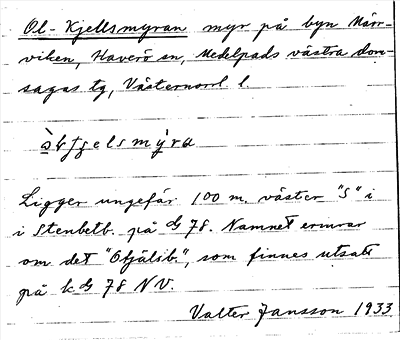 Ol-Kjellsmyran myr på byn Närr-
viken, Haverö sn, Medelpads västra dom-
sagas tg, Västernorrl l.
Ligger ungefär 100 m. väster "S" i
i Stenbetb. på 78. Namnet erinrar
om det som finnes utsatt
på 78 NV.
Valter Jansson 1933